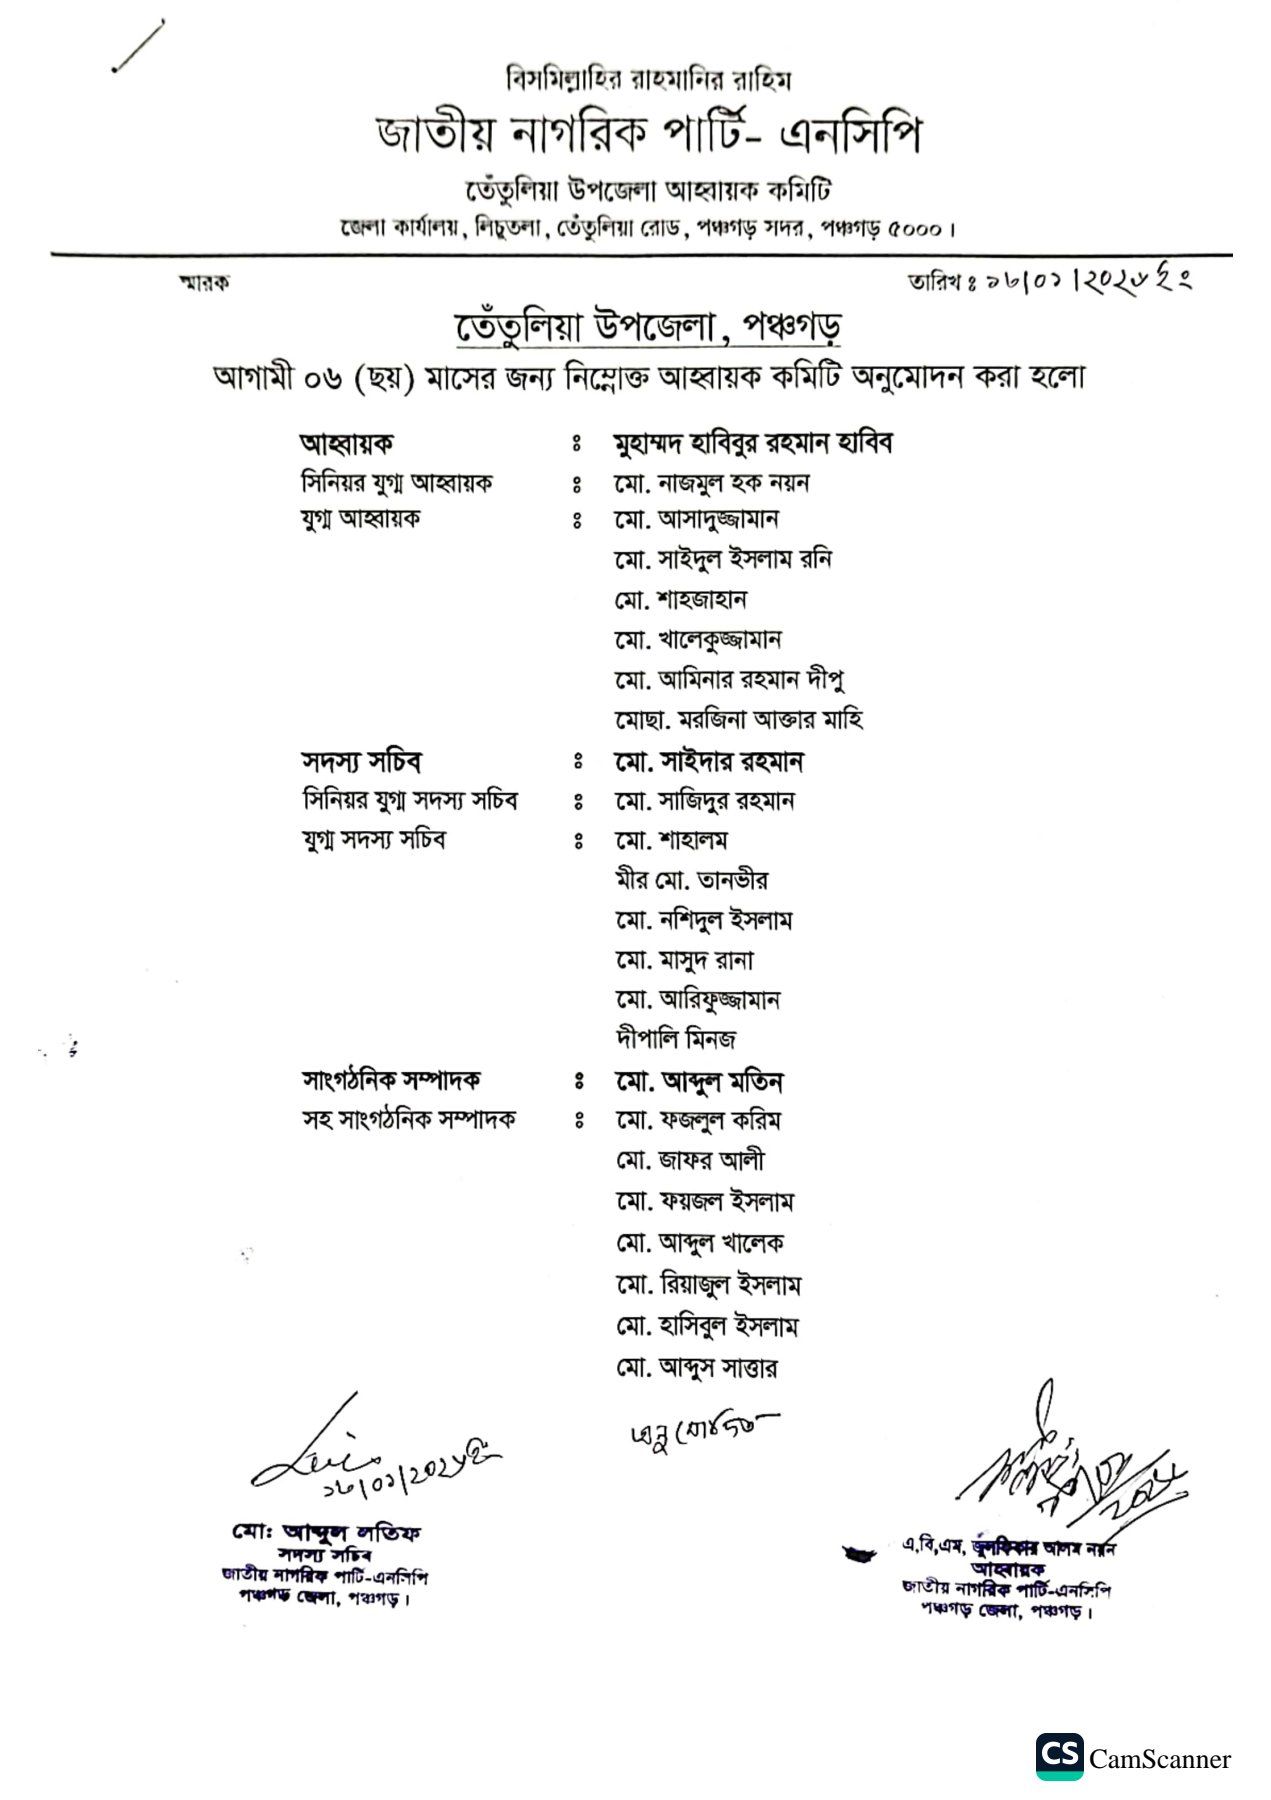 বিসমিল্লাহির রাহমানির রাহিম
জাতীয় নাগরিক পার্টি- এনসিপি
তেঁতুলিয়া উপজেলা আহ্বায়ক কমিটি
জেলা কার্যালয়, লিচুতলা, তেঁতুলিয়া রোড, পঞ্চগড় সদর, পঞ্চগড় ৫০০০।
স্মারক তারিখঃ ১৮/০১/২০২৬ইং
তেঁতুলিয়া উপজেলা, পঞ্চগড়
আগামী ০৬ (ছয়) মাসের জন্য নিম্নোক্ত আহ্বায়ক কমিটি অনুমোদন করা হলো
আহ্বায়ক ঃ মুহাম্মদ হাবিবুর রহমান হাবিব
সিনিয়র যুগ্ম আহ্বায়ক ঃ মো. নাজমুল হক নয়ন
যুগ্ম আহ্বায়ক ঃ মো. আসাদুজ্জামান
মো. সাইদুল ইসলাম রনি
মো. শাহজাহান
মো. খালেকুজ্জামান
মো. আমিনার রহমান দীপু
মোছা. মরজিনা আক্তার মাহি
সদস্য সচিব ঃ মো. সাইদার রহমান
সিনিয়র যুগ্ম সদস্য সচিব ঃ মো. সাজিদুর রহমান
যুগ্ম সদস্য সচিব ঃ মো. শাহালম
মীর মো. তানভীর
মো. নশিদুল ইসলাম
মো. মাসুদ রানা
মো. আরিফুজ্জামান
দীপালি মিনজ
সাংগঠনিক সম্পাদক ঃ মো. আব্দুল মতিন
সহ সাংগঠনিক সম্পাদক ঃ মো. ফজলুল করিম
মো. জাফর আলী
মো. ফয়জল ইসলাম
মো. আব্দুল খালেক
মো. রিয়াজুল ইসলাম
মো. হাসিবুল ইসলাম
মো. আব্দুস সাত্তার
অনুমোদিত
১৮/০১/২০২৬ইং
মো: আব্দুল লতিফ
সদস্য সচিব
জাতীয় নাগরিক পার্টি-এনসিপি
পঞ্চগড় জেলা, পঞ্চগড়।
এ,বি,এম, জুলফিকার আলম নয়ন
আহ্বায়ক
জাতীয় নাগরিক পার্টি-এনসিপি
পঞ্চগড় জেলা, পঞ্চগড়।
CS CamScanner